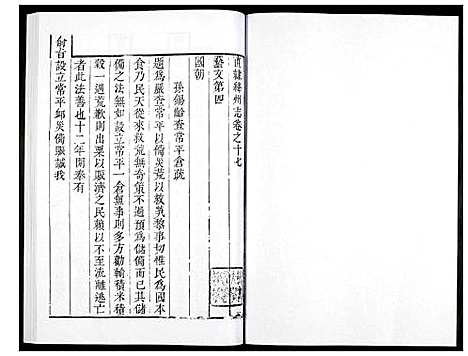 直隸絳州志卷之十七
藝文第四
國朝
孫錫齡查常平倉疏
題爲嚴查常平以備災荒以救黎事切惟民爲國本
食乃民天從來救荒無奇策不過預爲儲備而已儲
備之法無如設立常平一倉無事則多方勸輸積米積
穀一遇荒歉則出粟以賑濟之民賴以不至流離逃亡
者此法善也十二年間奉有
俞旨設立常平郇災備賑誠我